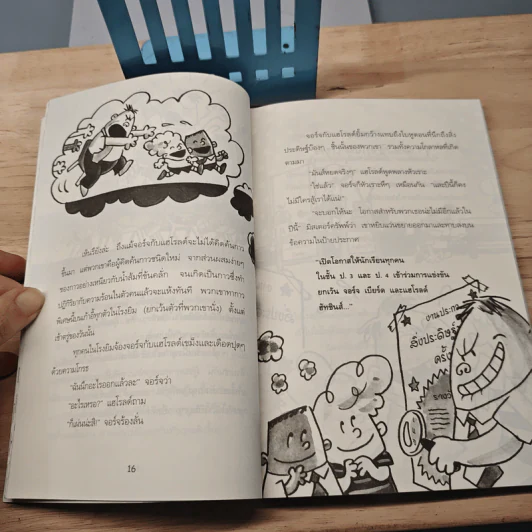 เห็นรึยังล่ะ ถึงแม้จอร์จกับแฮโรลด์จะไม่ได้คิดค้นกาว
ขึ้นมา แต่พวกเขาคือผู้คิดค้นกาวชนิดใหม่ จากส่วนผสมง่ายๆ
ของกาวยางเหนียวกับน้ำส้มคั้นชนิดคลัก จนเกิดเป็นกาวซึ่งทำ
ปฏิกิริยากับความร้อนในตัวคนแล้วจะแห้งทันที พวกเขาทากาว
พิเศษนี้บนเก้าอี้ทุกตัวในโรงยิม (ยกเว้นตัวที่พวกเขานั่ง) ตั้งแต่
เช้าตรู่ของวันนั้น
ทุกคนในโรงยิมจ้องจอร์จกับแฮโรลด์เขม็งและเดือดปุดๆ
ด้วยความโกรธ
"ฉันนึกอะไรออกแล้วละ" จอร์จว่า
"อะไรเหรอ?" แฮโรลด์ถาม
"ก็เผ่นน่ะสิ!" จอร์จร้องลั่น
16
จอร์จกับแฮโรลด์ยิ้มกว้างแทบถึงใบหูตอนที่นึกถึงสิ่ง
ประดิษฐ์น้องๆ ชิ้นนั้นของพวกเขา รวมทั้งความโกลาหลที่เกิด
ตามมา
"มันส์หยดจริงๆ" แฮโรลด์พูดพลางหัวเราะ
"ใช่แล้ว" จอร์จก็หัวเราะหึๆ เหมือนกัน "และปีนี้ก็คง
ไม่มีใครสู้เราได้แน่"
"จะบอกให้นะ โอกาสสำหรับพวกเธอน่ะไม่มีอีกแล้วใน
ปีนี้" มิสเตอร์ครัพพ์ว่า เขาหยิบแว่นขยายออกมาและทาบลงบน
ข้อความในป้ายประกาศ
"เปิดโอกาสให้นักเรียนทุกคน
ในชั้น ป. 3 และ ป. 4 เข้าร่วมการแข่งขัน
ยกเว้น จอร์จ เบียร์ด และแฮโรลด์
ฮัทชินส์..."
งานประกวด
สิ่งประดิษฐ์
ครั้ง